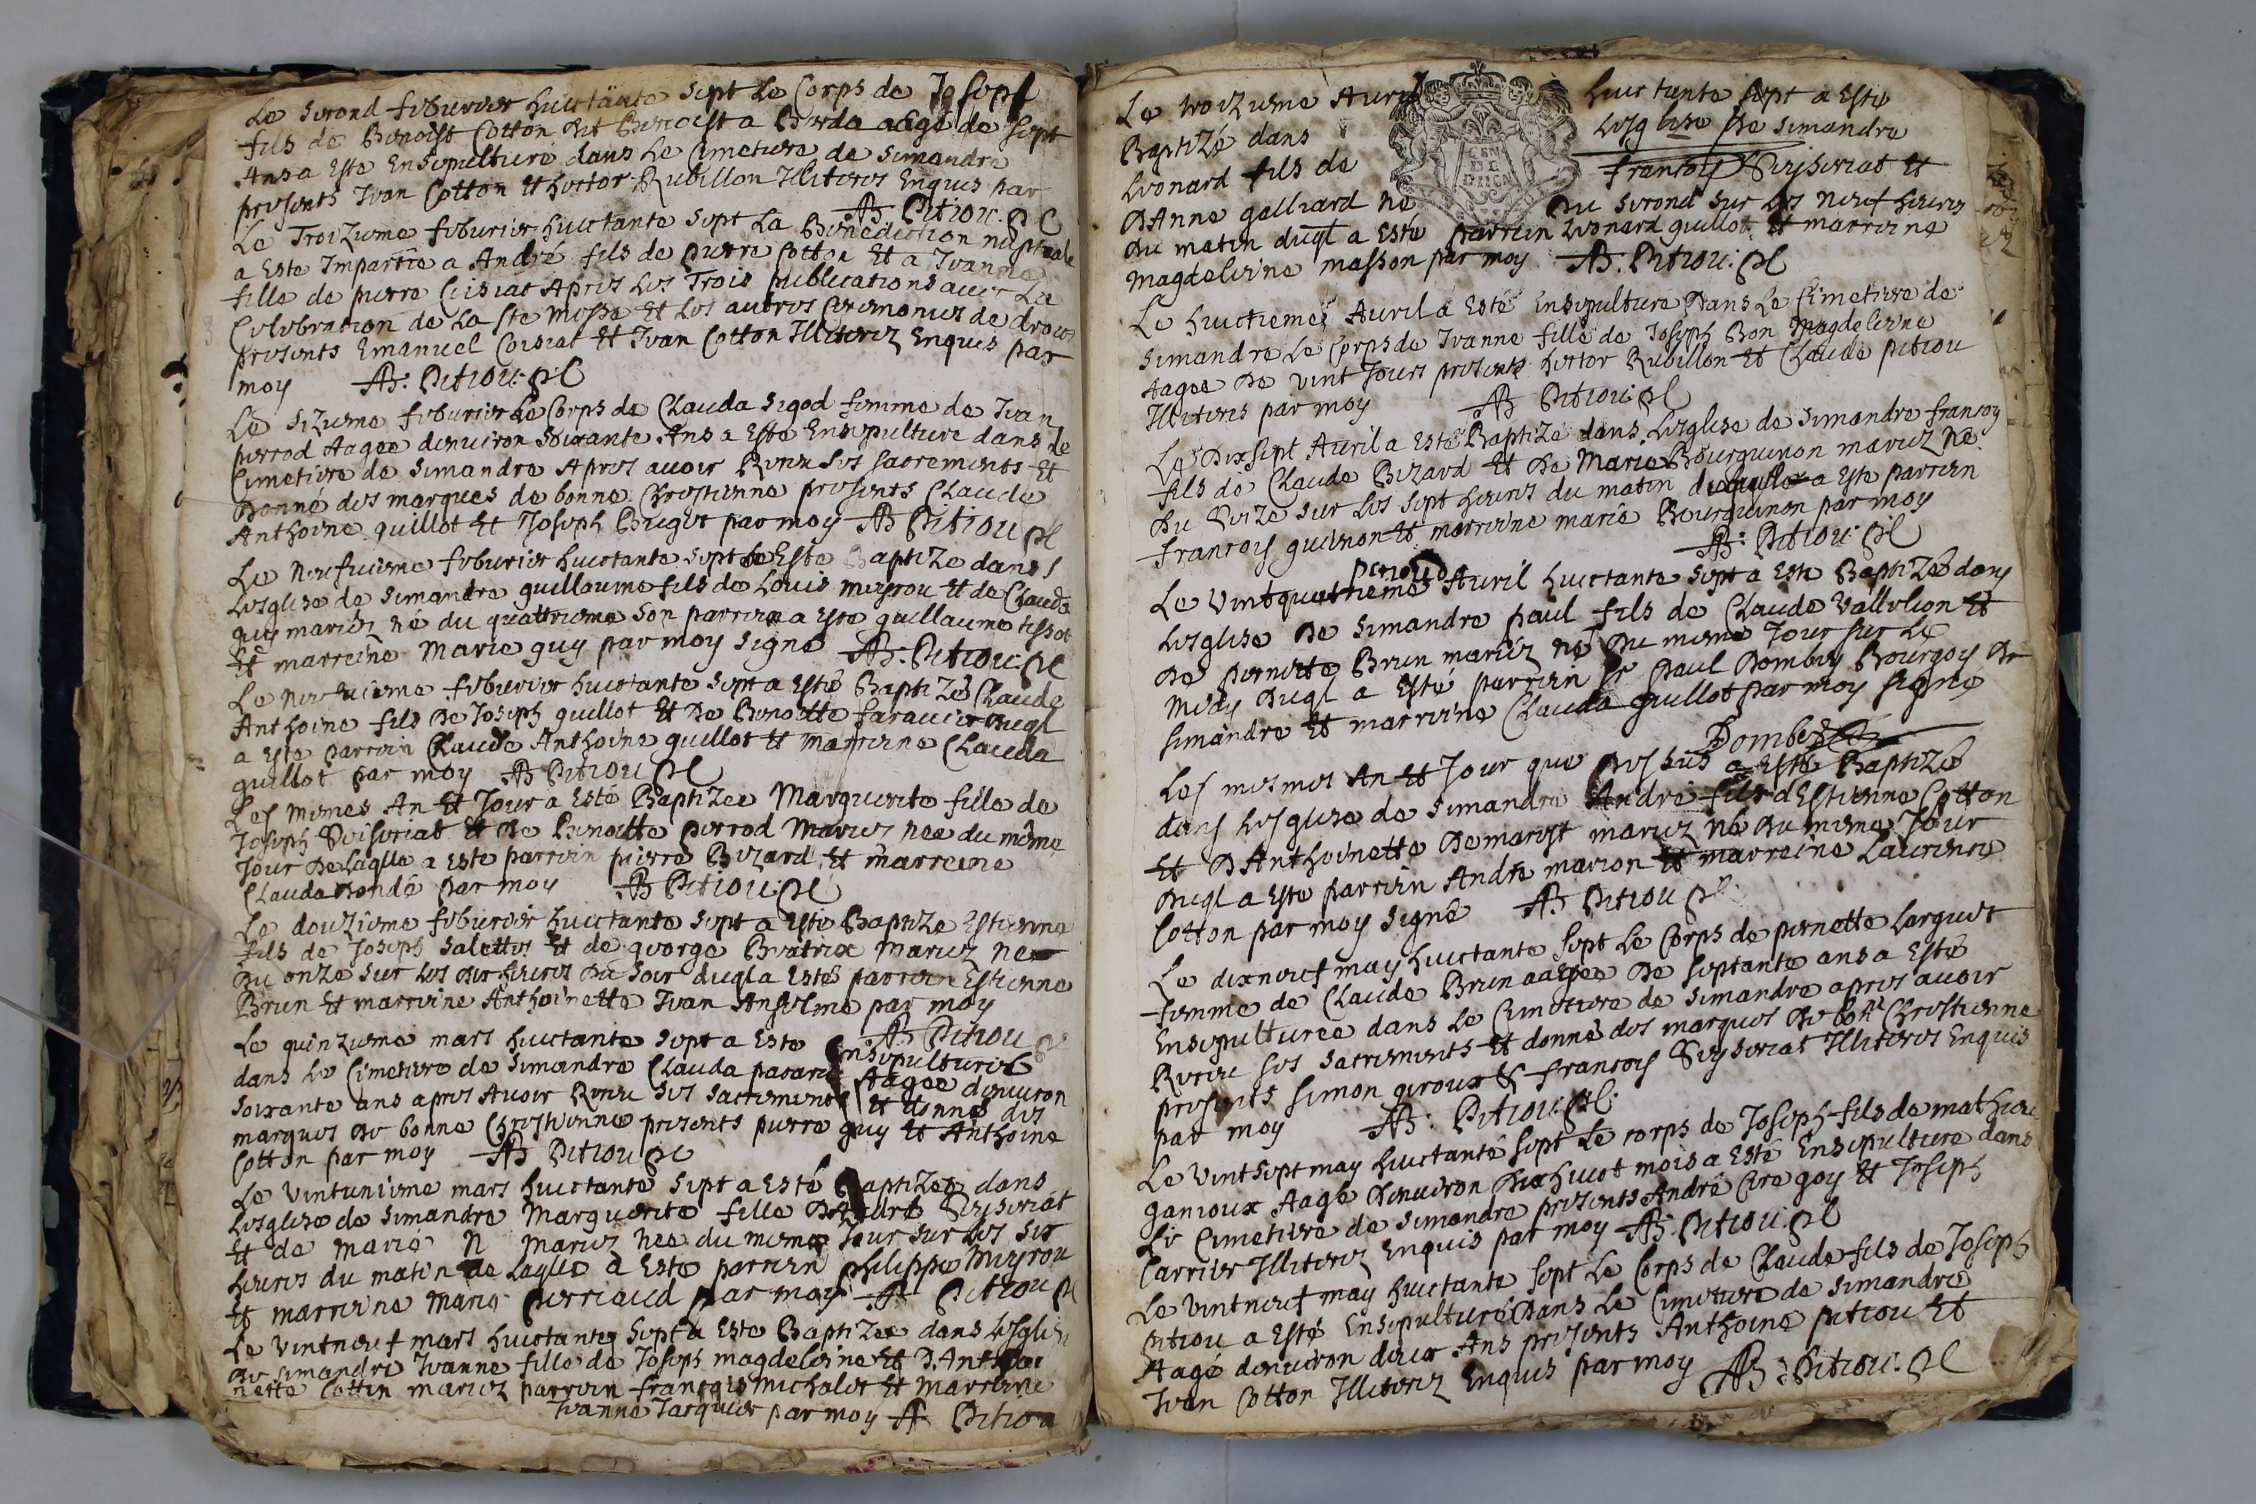 Le second feburier huictante sept Le Corps de Joseph
fils de Benoist Cotton dit Benoist a aagé de sept
Ans a Esté Ensepulturé dans Le Cimetiere de Simandre
presents Jean Cotton Et hector Rubillon Illiteres Enquis par
A B. Pitiou
Le Troizieme feburier huictante sept La Benediction nuptiale
a Esté Impartie a André fils de pierre Cotton Et a Jeanne
fille de pierre Apres Les Trois publications avec La
Celebration de La Ste Messe Et Les autres Ceremonies de
presents Emanuel Et Jean Cotton Illiterez Enquis par
moy A B. Pitiou
Le Sizieme feburier Le Corps de Clauda Sigod femme de Jean
perrod Aagee denviron soixante Ans a Esté Ensepulture dans Le
Cimetiere de Simandre Apres avoir Receu ses sacrements Et
Donné des marques de bonne Chrestienne presents Claude
Anthoine guillot Et Joseph par moy A B Pitiou
Le Neufuieme feburier huictante sept a Esté Baptizé dans
Lesglise de Simandre guillaume fils de Louis meyrou Et de Clauda
guy mariez né du quattrieme son parrein a esté guillaume tissot
Et marreine Marie guy par moy signé A B. Pitiou
Le Neufuieme feburier huictante sept a Esté Baptizé Claude
Anthoine fils De Joseph guillot Et De Benoitte Dugl
a Esté parrein Claude Anthoine guillot Et marreine Clauda
guillot par moy A B Pitiou
Les memes An Et Jour a Esté Baptizee Marguerite fille de
Joseph Et De Benoitte perrod Mariez nee du même
Jour De Laqlle a esté parrein pierre Bizard Et marreine
Clauda par moy A B Pitiou
Le douzieme feburier huictante sept a Esté Baptizé Estienne
fils de Joseph Salettes Et de george Beatrix Mariez né
Du onze sur Les Dix heures Du soir dugl a Esté parrein Estienne
Brun Et marreine Anthoinette Jean Anselme par moy
A B Pitiou
Le quinzieme mars huictante sept a Esté Ensepulturée
dans Le Cimetiere de Simandre Clauda Aagee denviron
soixante ans apres Avoir Receu ses sacrements Et donné des
marques de bonne Chrestienne presents pierre guy Et Anthoine
Cotton par moy A B Pitiou
Le vintunieme mars huictante sept a Esté Baptizée dans
Lesglise de Simandre Marguerite fille DAndré
Et de Marie N Mariez nee du meme Jour sur Les six
heures du matin de Laqlle a Esté parrein philippe Meyrou
Et marreine marie perriaud par moy A B Pitiou
Le vintneuf mars huictante sept a Esté Baptizee dans Lesglise
De Simandre Jeanne fille de Joseph magdeleine Et D'Anthoi
nette Cottin mariez parrein françois michalet Et Marreine
Jeanne Jacquier par moy A B Pitiou
Le troizieme Auril huictante sept a Esté
Baptizé dans Lesglise De Simandre
Leonard fils de francois Et
DAnne galliard né Du second sur Les neuf heures
Du matin dugl a Esté parrein Leonard guillot Et marreine
Magdeleine masson par moy A B. Pitiou
Le huictieme Auril a Esté Ensepulture Dans Le Cimetiere de
Simandre Le Corps de Jeanne fille de Joseph Bon Magdeleine
Aagee De vint Jours presents hector Rubillon Et Claude pitiou
Illiteres par moy A B Pitiou
Le Dixsept Auril a Esté Baptizé dans Lesglise de Simandre francoy
fils de Claude Bizard Et De Marie Bourguinon mariez né
Du Seize sur Les sept heures du matin duquel a Esté parrein
francoys guinon Et marreine marie Bourguinon par moy
A B. Pitiou
Le vintquatrieme Auril huictante sept a Esté Baptizé dans
Lesglise De Simandre paul fils de Claude Et
De pernette Brun mariez né Du meme Jour sur Le
midy Dugl a Esté parrein Sr Paul Dombey Bourgoys De
Simandre Et marreine Clauda guillot par moy signé
Dombey
Les mesmes An Et Jour que Dessus a Esté Baptizé
dans Lesglise de Simandre André fils dEstienne Cotton
Et DAnthoinette Demarest mariez né Du meme Jour
Dugl a Esté parrein André marion Et marreine Laurence
Cotton par moy signé A B. Pitiou
Le dixneuf may huictante sept Le Corps de pernette
femme de Claude Brun aagée De septante ans a Esté
Ensepulturee dans Le Cimetiere de Simandre apres avoir
Receu ses sacrements Et donné des marques De bone Chrestienne
presents Simon giroux & francois Illiteres Enquis
par moy A B. Pitiou
Le vintsept may huictante sept Le corps de Joseph fils de mathieu
ganioux Aagé Denviron Dixhuict mois a Esté Ensepulturé dans
Le Cimetiere de Simandre presents André Et Joseph
Carrier Illiterez Enquis par moy A B. Pitiou
Le vintneuf may huictante sept Le Corps de Claude fils de Joseph
Pitiou a Esté Ensepulturé Dans Le Cimetiere de Simandre
Aagé denviron deux Ans presents Anthoine pitiou Et
Jean Cotton Illiterez Enquis par moy A B. Pitiou